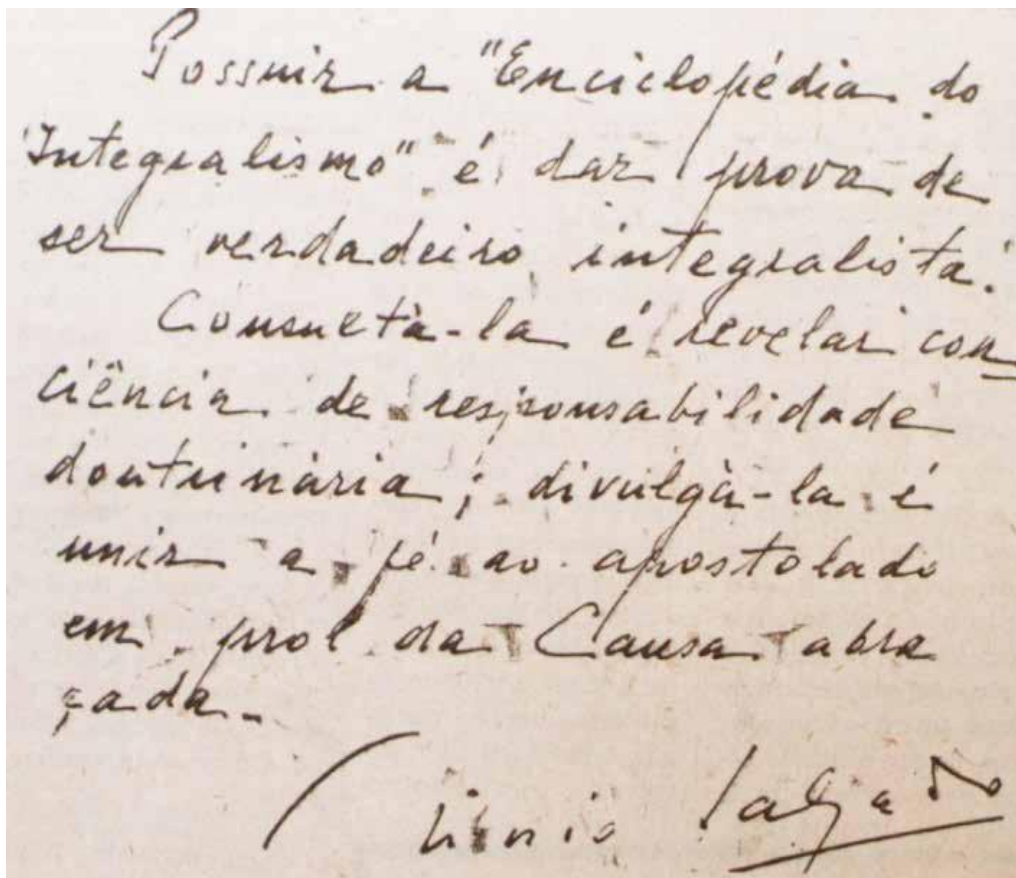 Possuir a "Enciclopédia do
Integralismo" é dar prova de
ser verdadeiro integralista.
Consultà-la é revelar con
ciência de responsabilidade
doutrinária; divulgà-la é
unir a fé ao apostolado
em prol da Causa abra
çada.
Plinio Salgado